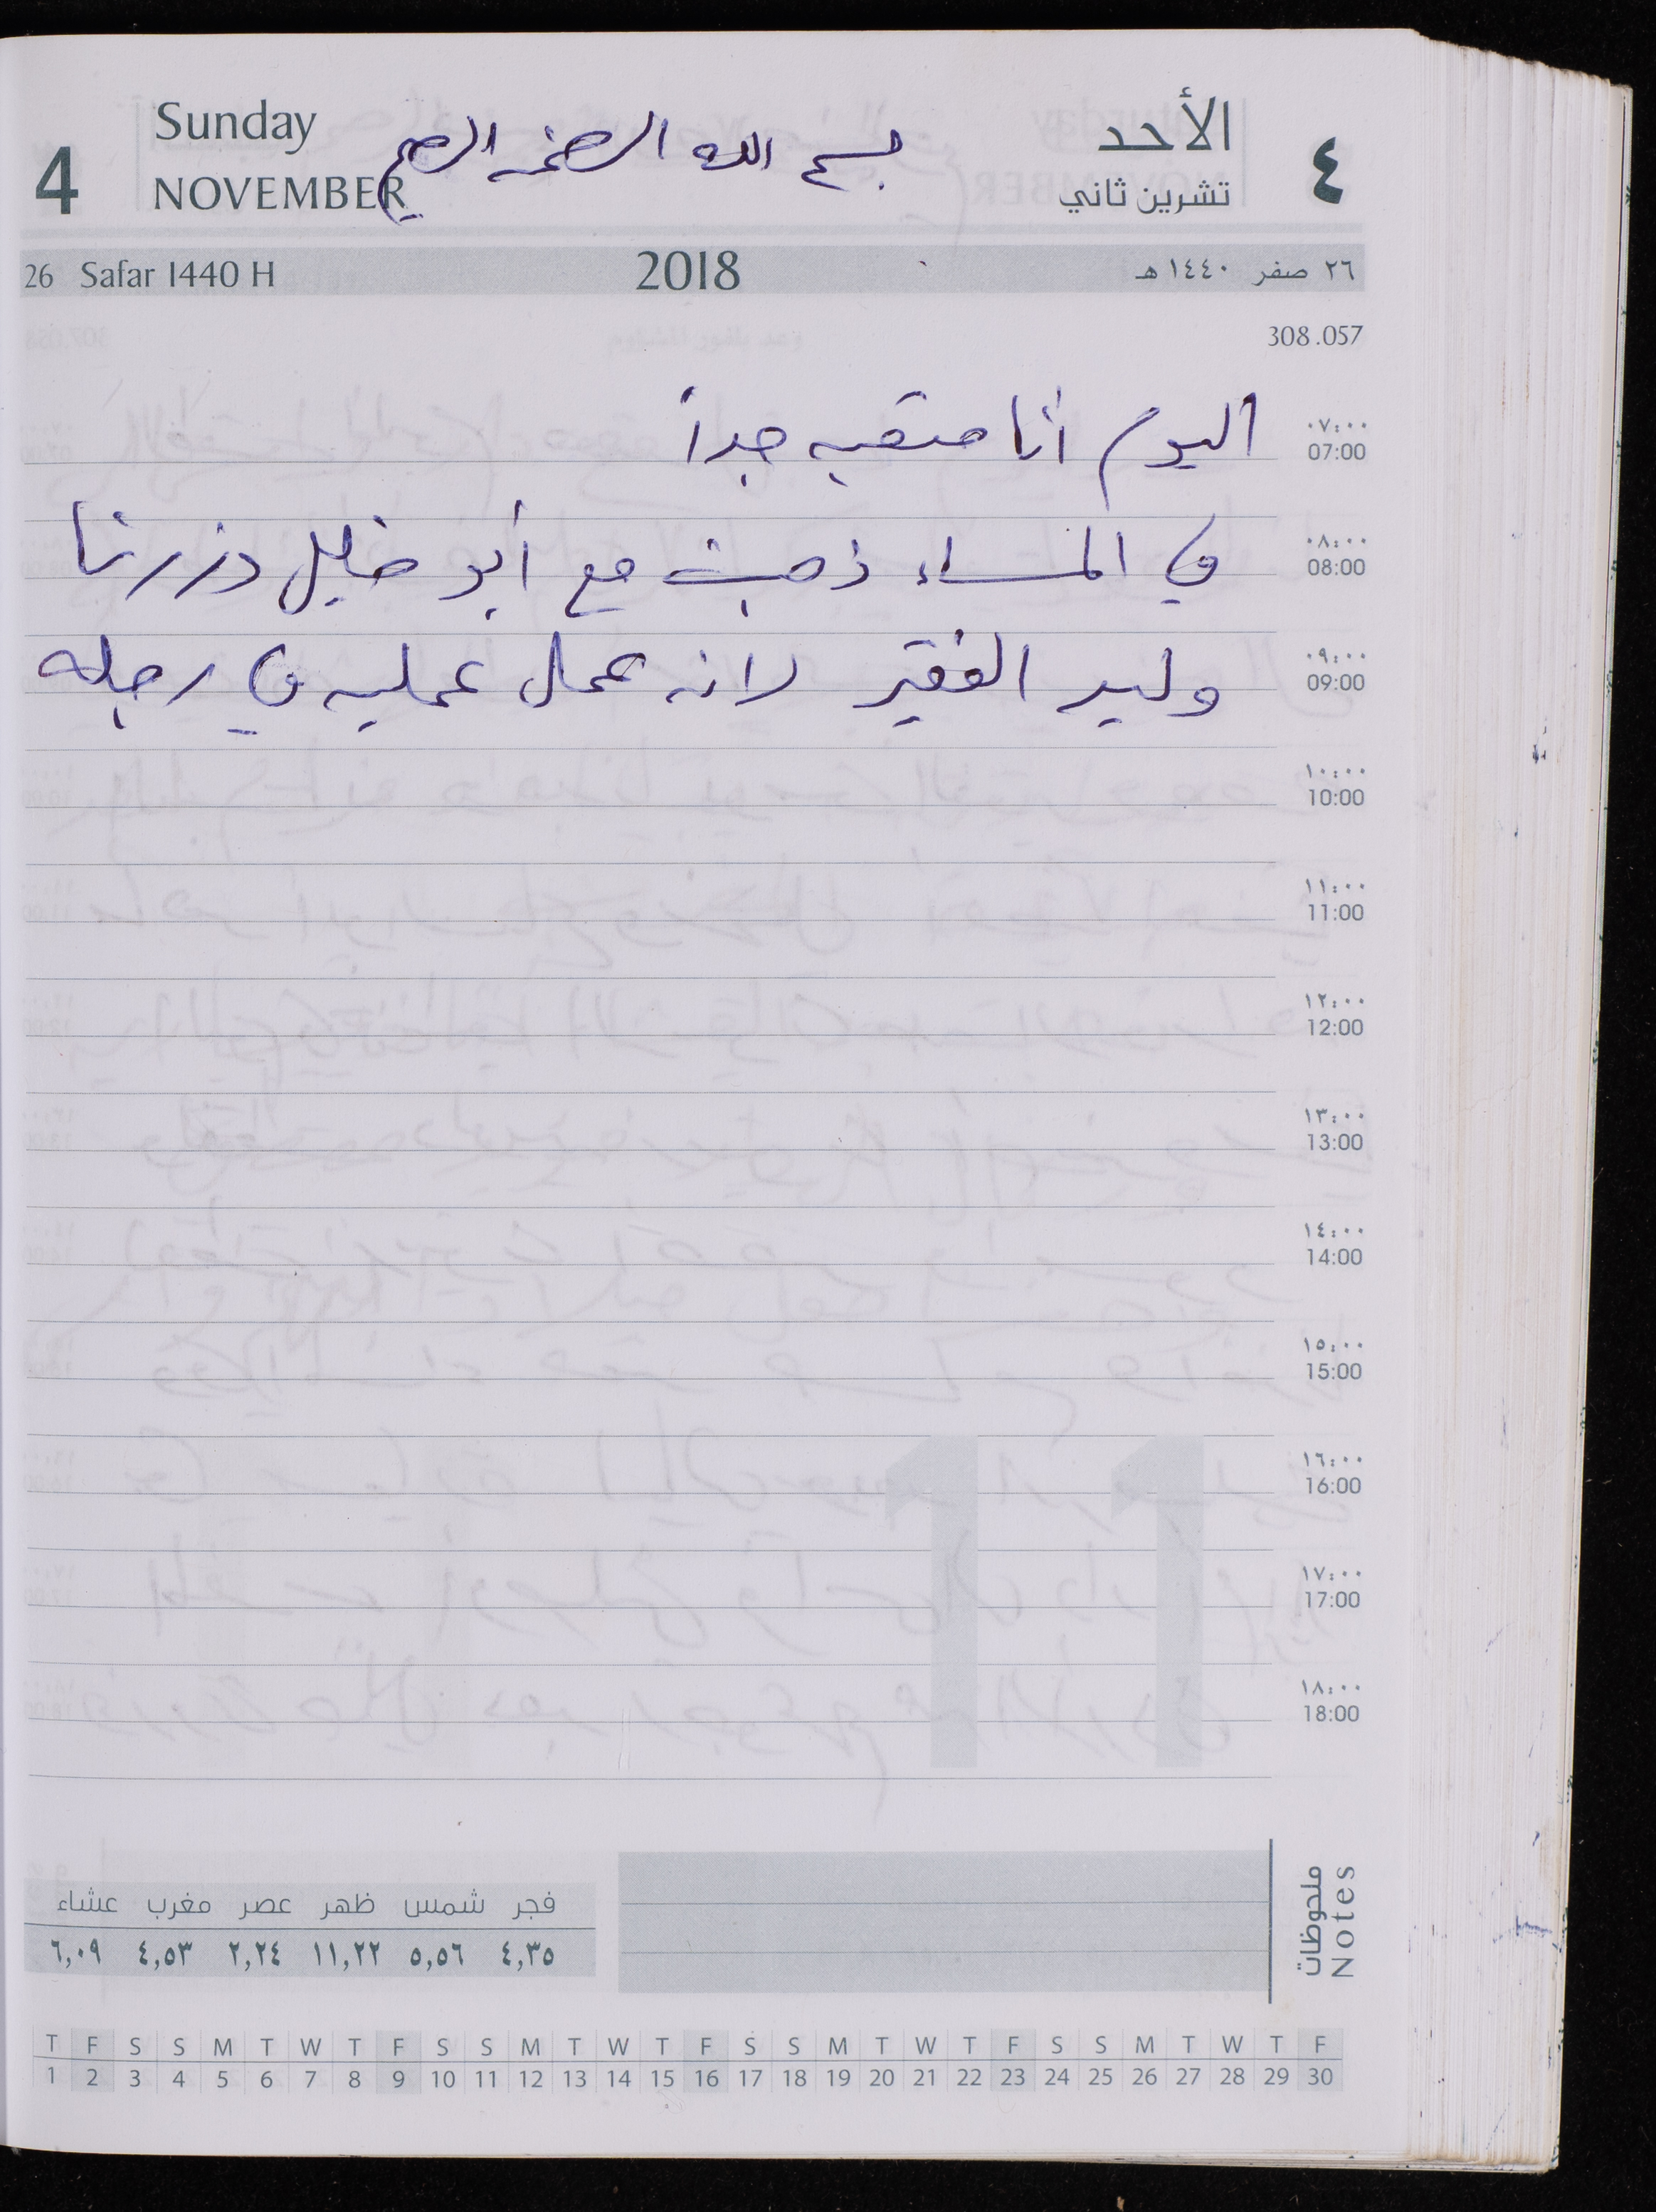 4 Sunday NOVEMBER
بسم الله الرحمن الرحيم
الأحد ٤
تشرين ثاني
26 Safar 1440 H 2018 ٢٦ صفر ١٤٤٠ هـ
308.057
اليوم أنا متعبه جداً
٠٧:٠٠
07:00
في المساء ذهبت مع أبو خليل وزرنا
٠٨:٠٠
08:00
وليد الفقير لانه عمل عمليه في رجله
٠٩:٠٠
09:00
١٠:٠٠
10:00
١١:٠٠
11:00
١٢:٠٠
12:00
١٣:٠٠
13:00
١٤:٠٠
14:00
١٥:٠٠
15:00
١٦:٠٠
16:00
١٧:٠٠
17:00
١٨:٠٠
18:00
11
ملحوظات
Notes
فجر شمس ظهر عصر مغرب عشاء
٤,٣٥ ٥,٥٦ ١١,٢٢ ٢,٢٤ ٤,٥٣ ٦,٠٩
T F S S M T W T F S S M T W T F S S M T W T F S S M T W T F
1 2 3 4 5 6 7 8 9 10 11 12 13 14 15 16 17 18 19 20 21 22 23 24 25 26 27 28 29 30